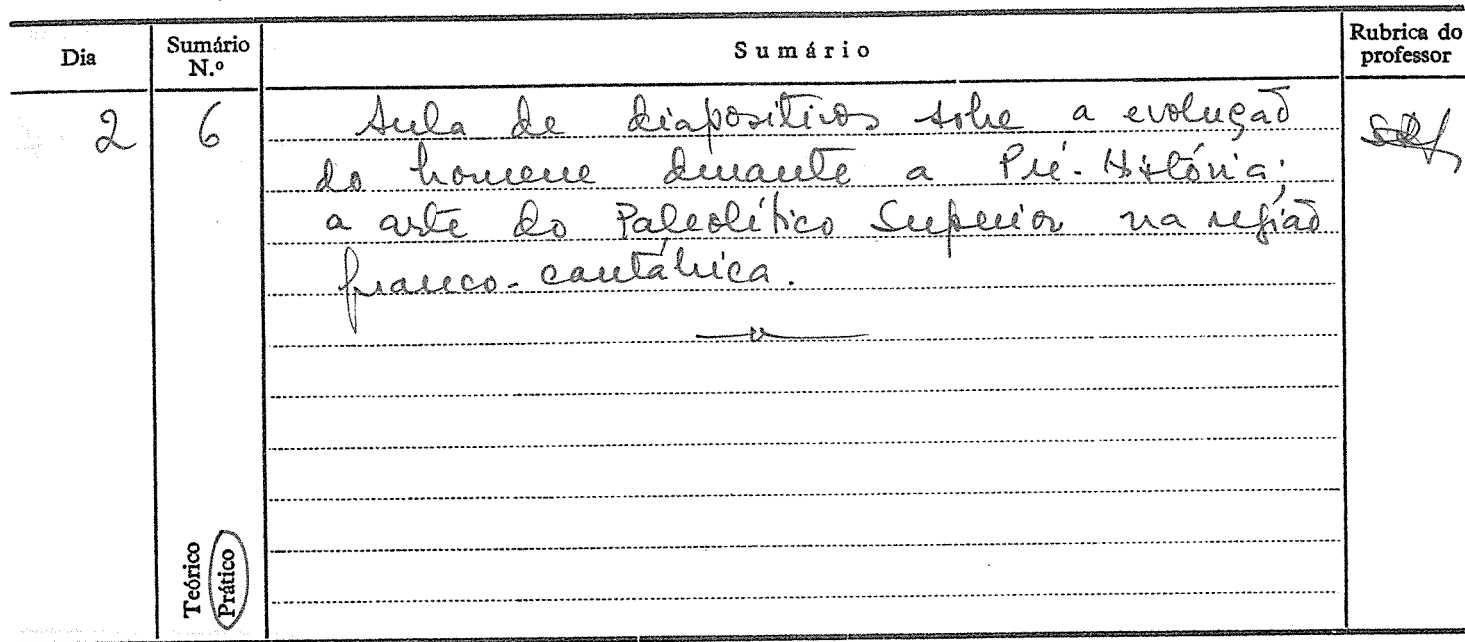 Dia
Sumário N.º
Sumário
Rubrica do professor
2
6
Aula de diapositivos sobre a evolução
do homem durante a Pré-História;
a arte do Paleolítico Superior na região
franco-cantábrica.
Teórico
Prático